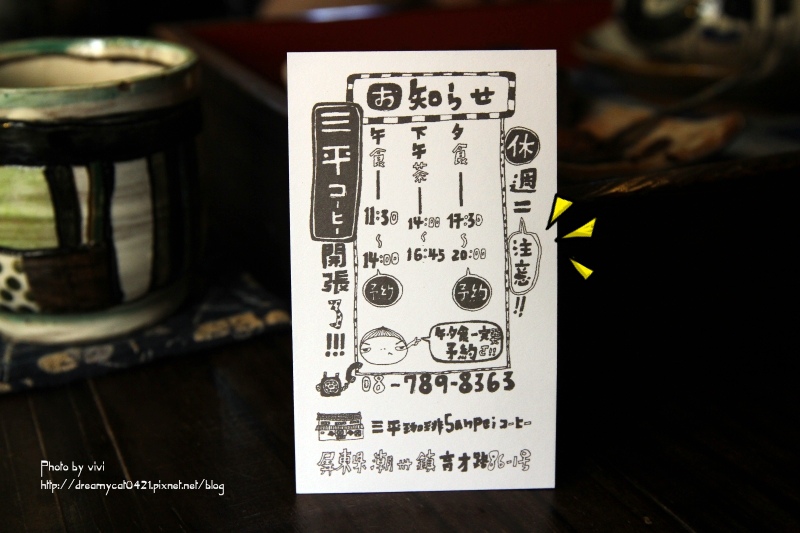 お知らせ
三平コーヒー開張了!!!
午食 11:30~14:00 予約
下午茶 14:00~16:45
夕食 17:30~20:00 予約
休週二
注意!!
午夕食一定要
予約さ!!
08-789-8363
三平珈琲Sanpeiコーヒー
屏東県潮州鎮育才路86-1号
Photo by vivi
http://dreamycat0421.pixnet.net/blog